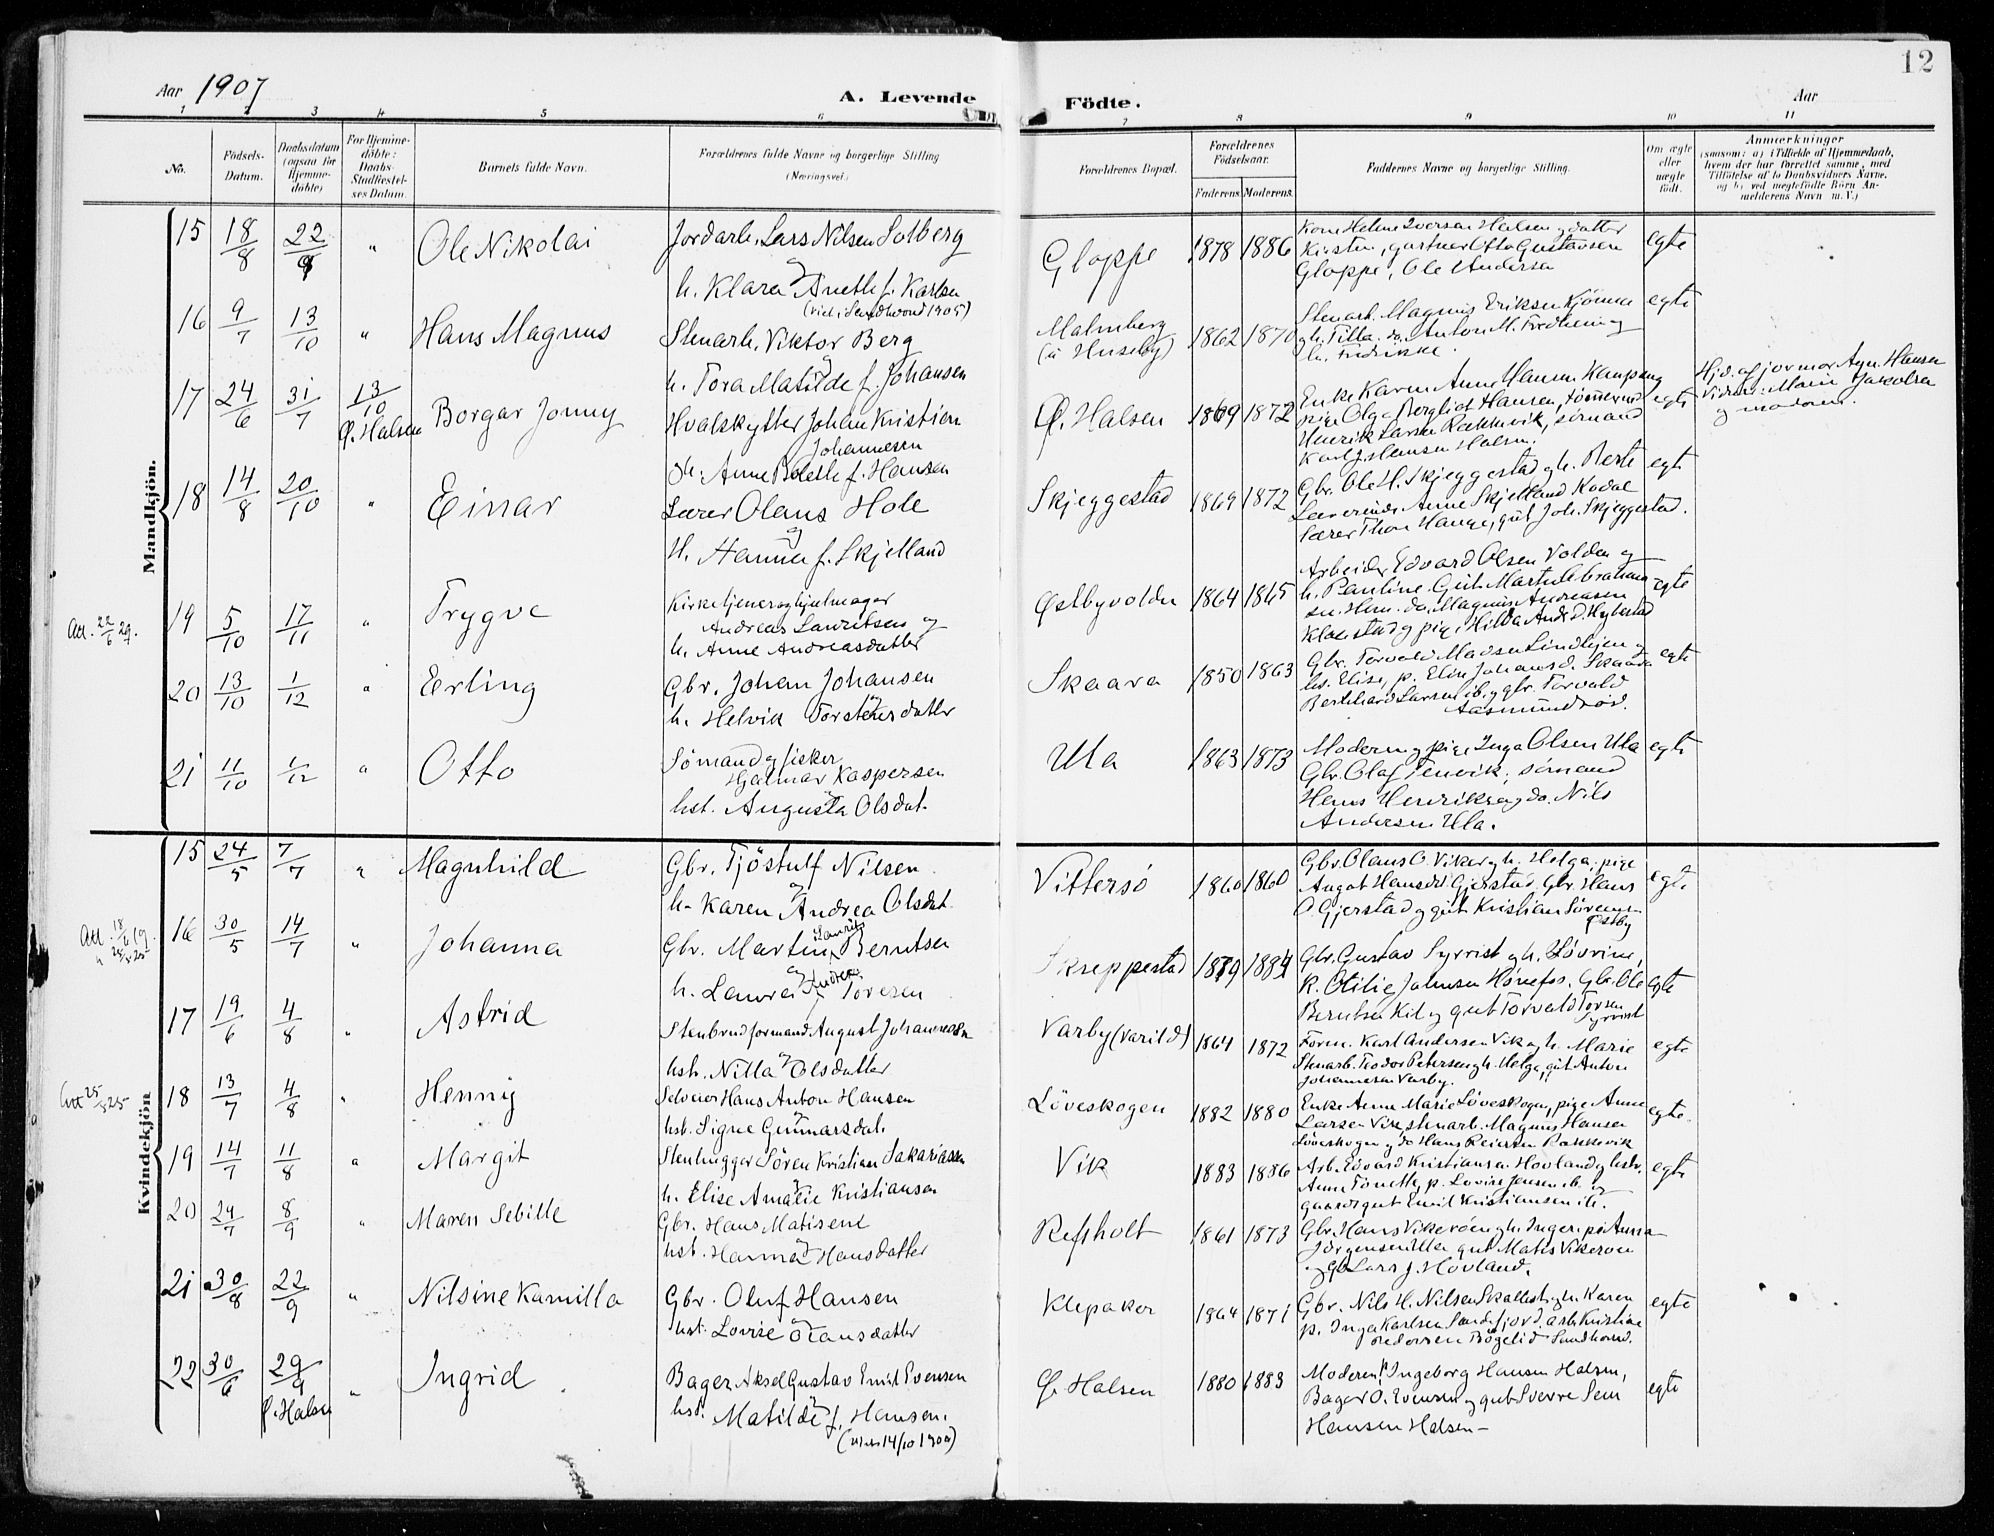 12
Aar 1907
A. Levende
Födte.
Aar
1 2 3 4 5 6 7 8 9 10 11
No.
Födsels-
Datum.
Daabsdatum
(ogsaa for
Hjemme-
döbte)
For Hjemme-
döbte:
Daabs-
Stadfæstel-
ses Datum.
Barnets fulde Navn.
Forældrenes fulde Navne og borgerlige Stilling
(Næringsvei.)
Forældrenes Bopæl.
Forældrenes
Födselsaar.
Faderens Moderens.
Faddernes Navne og borgerlige Stilling.
Om ægte
eller
uægte
født.
Anmærkninger
(saasom: a) i Tilfælde af Hjemmedaab,
hvem der har forrettet samme, med
Tilföielse af to Daabsvidners Navne.
og b) ved uægtefödte Börn An-
melderens Navn m. V.)
Mandkjön.
15 18/8 22/9 " Ole Nikolai
Jordarb. Lars Nilsen Solberg
og
h. Klara Aneth f. Karlsen
Gloppe 1878 1886
Kone Helene Iversen Halsen og datter
Kirsten, gartner Otto Gustavsen
Gloppe, Ole Andersen
egte
16 9/7 13/10 " Hans Magnus
Stenarb. Viktor Berg
h. Tora Matilde f. Johansen
Malmberg
(u Huseby)
1862 1870
Stenarb. Magnus Eriksen
h. Fredrikke.
egte
17 24/6 31/7 13/10
Ø. Halsen
Borgar Jonny
Hvalskytter Johan Kristian
Johannesen
h. Anne Bolette f. Hansen
Ø. Halsen 1869 1872
Enke Karen Anne Hansen
pige Olga Bergliot Hansen,
Henrik Larsen Rækkevik, sømand
Karl J. Hansen Halsen.
egte
Hjd. af jormor Agn. Hansen
Vidner: Marie Jakobsen
og moderen.
18 14/8 20/10 " Einar
Lærer Olaus Hole
og
H. Hanna f. Skjelland
Skjeggestad 1869 1872
Gbr. Ole H. Skjeggestad og h. Berte
Lærerinde Anne Skjelland Kodal
Lærer Thor Hauge, gut Joh. Skjeggestad.
egte
Att. 22/6 29.
19 5/10 17/11 " Trygve
Kirketjener og hjulmager
Andreas Lauritsen og
h. Anne Andreasdatter
Østbyvolden 1864 1865
Arbeider Edvard Olsen Volden og
h. Pauline. Gut Martin
Magnus Andreasen
egte
20 13/10 1/12 " Erling
Gbr. Johan Johansen
og
h. Helvik Torstensdatter
Skaara 1850 1863
Gbr. Torvald Madsen Lindhjem og
hs. Elise, p. Elise Johansd. Skaara
Bernhard Larsen ib. og gbr. Torvald
Aasmundrød.
egte
21 11/10 1/12 " Otto
Sømand og fisker
Hjalmar Kaspersen
og
hst. Augusta Olsdat.
Ula 1863 1873
Moderen og pige Inga Olsen Ula
Gbr. Olaf Tenvik, sømand
Hans Henriksen og do. Nils
Andersen Ula.
egte
Kvindekjön
15 24/5 7/7 " Magnhild
Gbr. Tjöstulf Nilsen
og
h. Karen Andrea Olsdat.
Vittersö 1860 1860
Gbr. Olaus O. Viker og h. Helga, pige
Gjerstad, Gbr. Hans
O. Gjerstad og gut Kristian Sörensen
Østby
egte
16 30/5 14/7 " Johanna
Gbr. Martin Laurits Berntsen
og
h. Laura Andrea Toresen
Skreppestad 1879 1884
Gbr. Gustav Syrrist og h. Lovise,
Otilie Johnsen Hønefos, Gbr. Ole
Berntsen Kil og gut Torvald Torsen
Syrrist
egte
17 19/6 4/8 " Astrid
Stenbrudformand August Johannesen
og
hst. Nilla Olsdatter
Varby (Varild) 1864 1872
Form. Karl Andersen Vik og h. Marie
Stenarb. Teodor Petersen og h. Helga, gut Anton
Johannesen Varby.
egte
Att 25/3 25
18 13/7 4/8 " Henny
Selveier Hans Anton Hansen
og
hst. Signe Gunnarsdat.
Löveskogen 1882 1880
Enke Anne Marie Löveskogen, pige Anne
Larsen Vik, stenarb. Magnus Hansen
Löveskogen og do Hans Reiersen Rækkevik
egte.
19 14/7 11/8 " Margit
Stenhugger Sören Kristian Sakariassen
og
h. Elise Amalie Kristiansen
Vik 1883 1886
Arb. Edvard Kristiansen Hovland og hstr.
Anne Tonette, p. Lovise Jensen ib. og
gaardsgut Emil Kristiansen ib.
egte
20 24/7 8/9 " Maren Sebille
Gbr. Hans Matisen
og
hst. Hanna Hansdatter
Refsholt 1861 1873
Gbr. Hans Vikerøen og h. Inger, p. Anna
Jørgensen Ula, gut Matis Vikerøen
og Gb. Lars J. Hovland.
21 30/8 22/9 " Nilsine Kamilla
Gbr. Oluf Hansen
og
hst. Lovise Hansdatter
Klepaker 1864 1871
Gbr. Nils H. Nilsen Skallest. og h. Karen
p. Inga Karlsen Sandefjord, arb. Kristian
Bøgelid Sandherred.
egte
22 30/6 29/9
Ø. Halsen
" Ingrid
Bager Aksel Gustav Emil Evensen
og
hst. Matilde f. Hansen.
Ø. Halsen 1880 1883
Moderen, p. Ingeborg Hansen Halsen,
Bager O. Evensen og gut Sverre Sem
Hansen Halsen –
egte